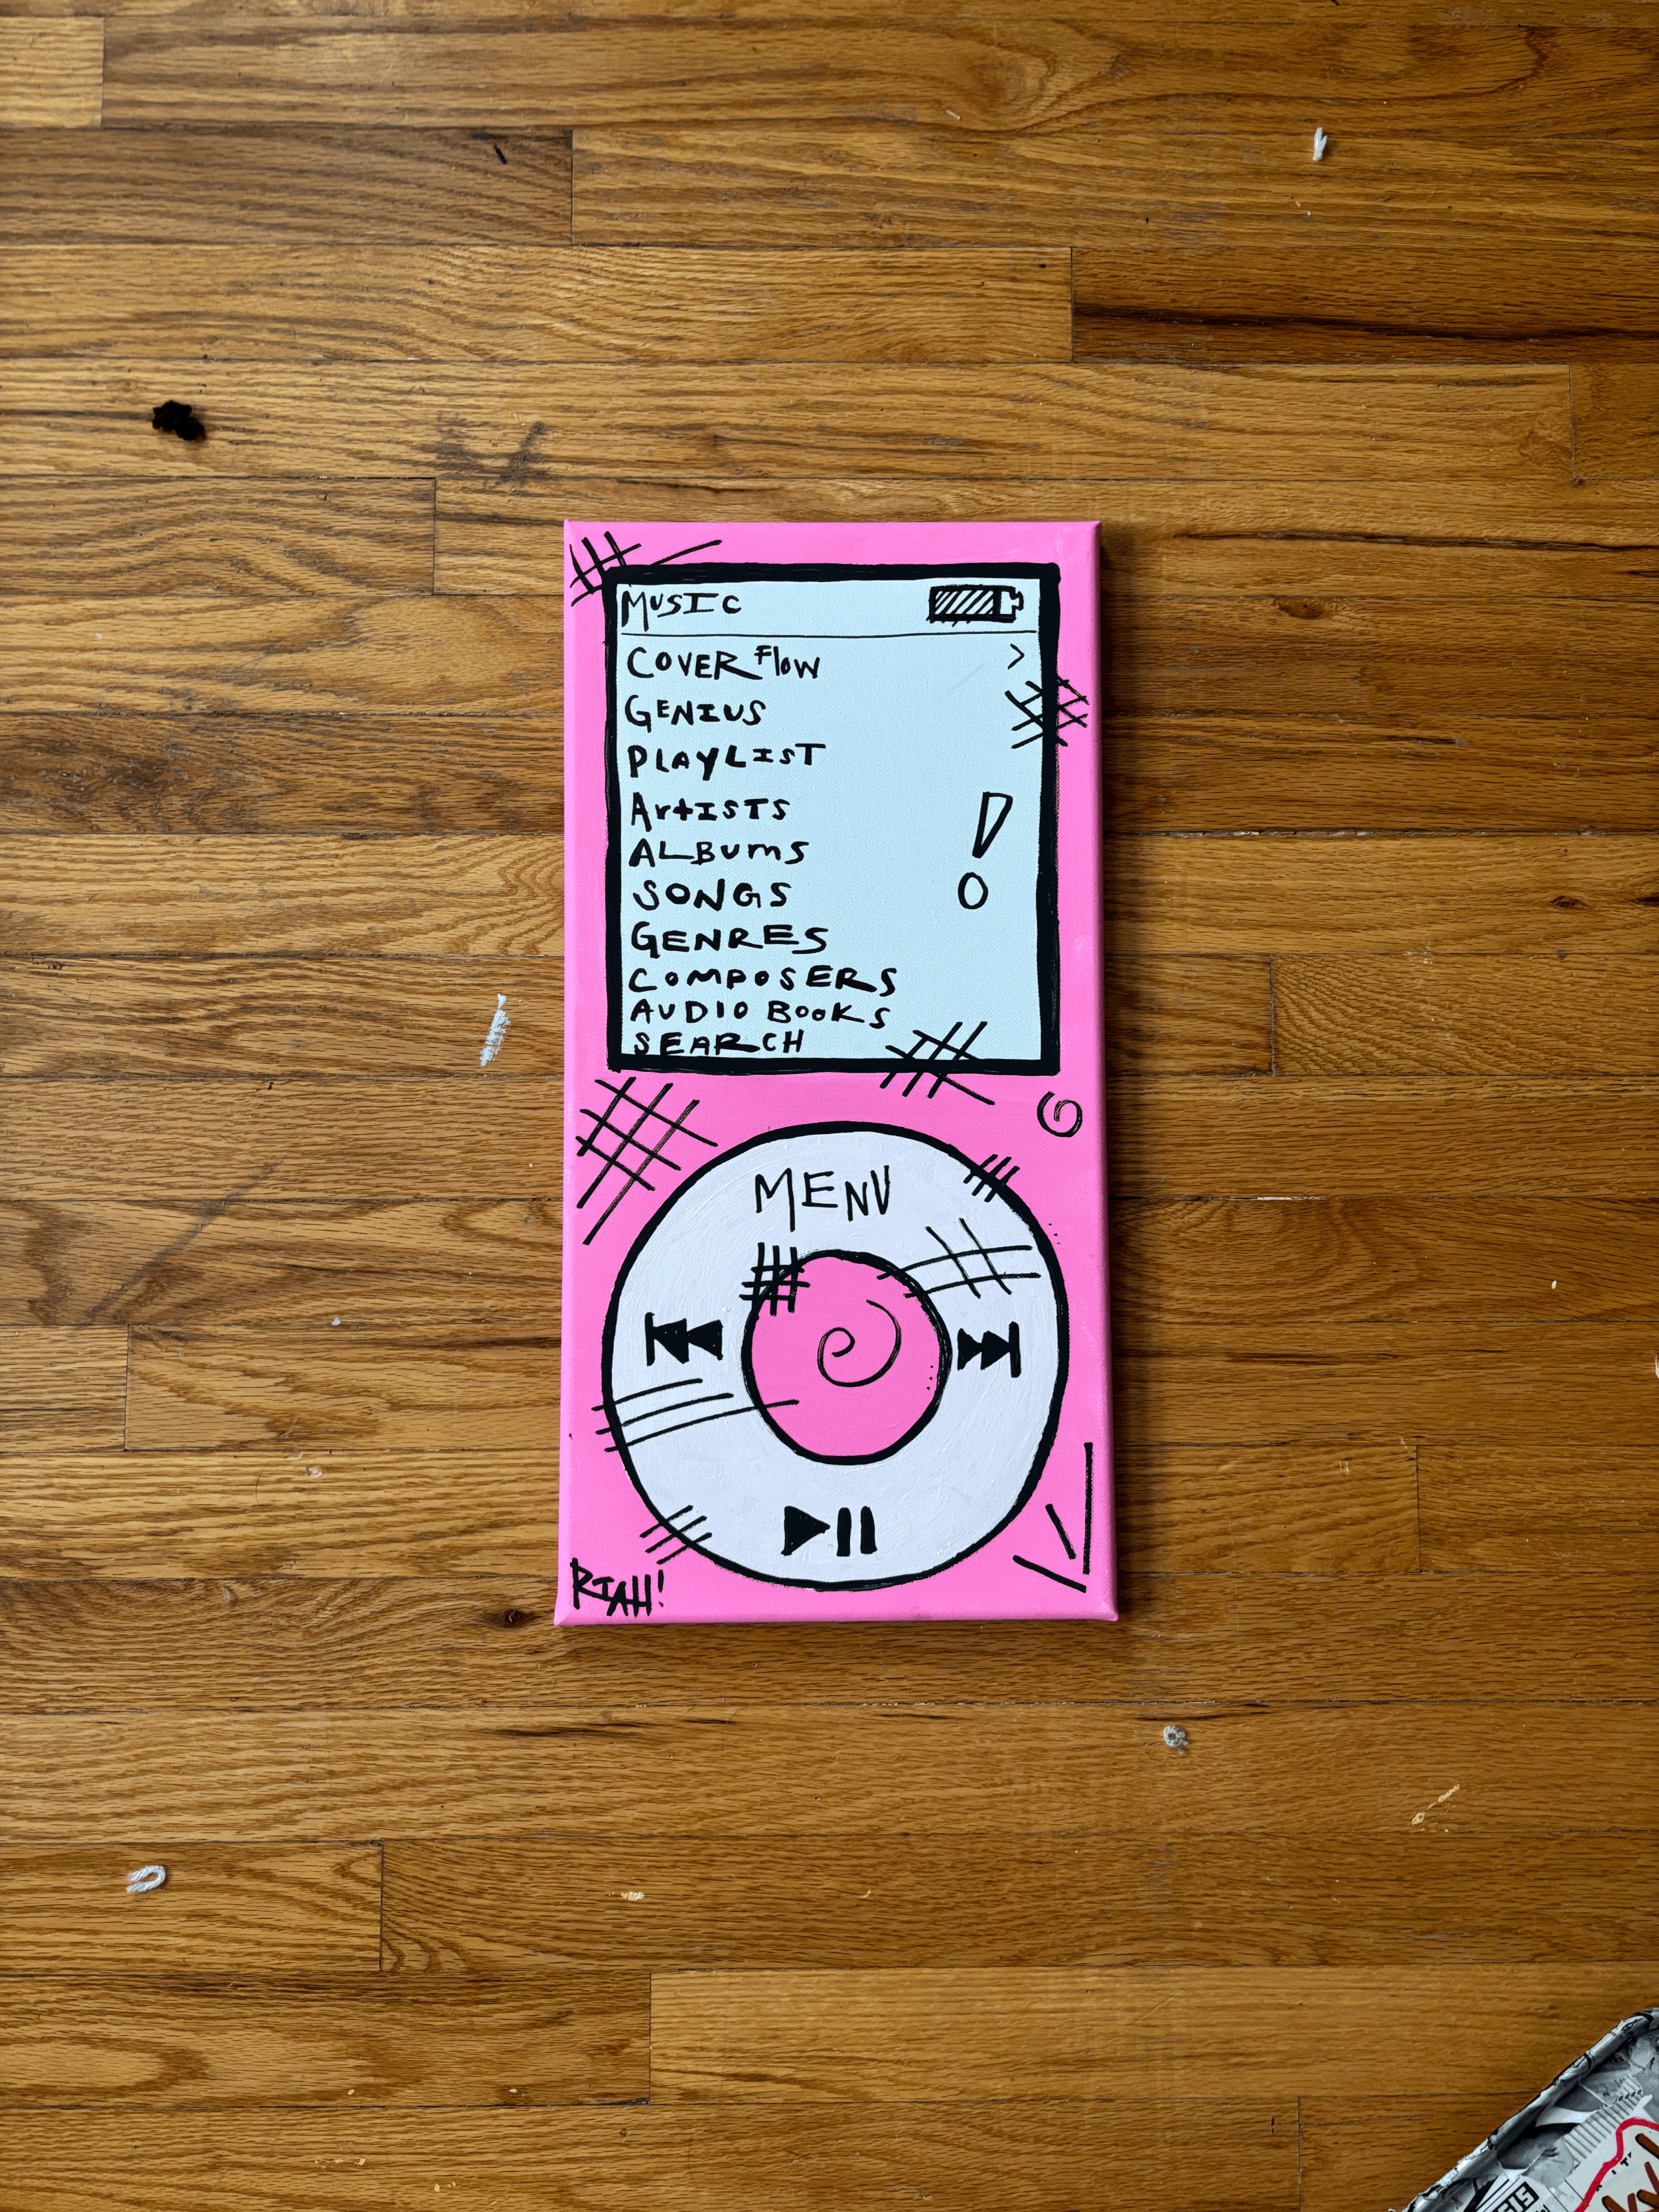 MUSIC
COVER FlOW >
GENIUS
PLAYLIST
ArtISTS
ALBUmS
SONGS
GENRES
COMPOSERS
AUDIO BOOKS
SEARCH
!
MENU
RIAH!